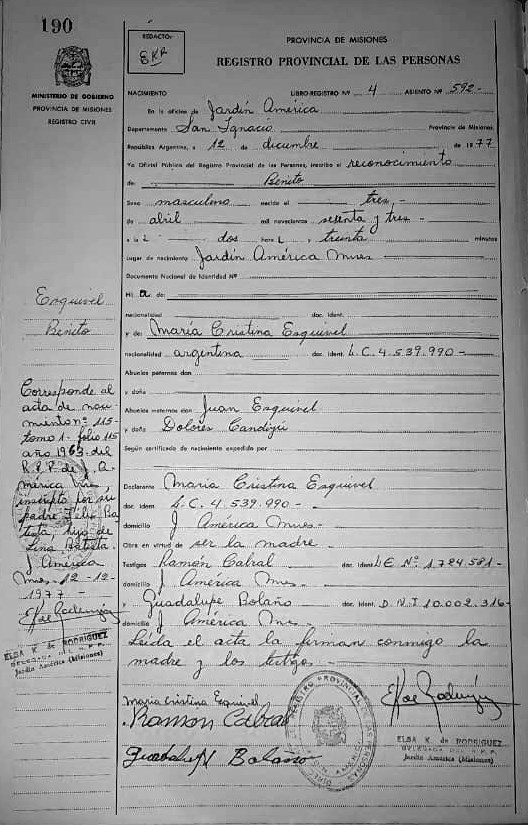 190
MINISTERIO DE GOBIERNO
PROVINCIA DE MISIONES
REGISTRO CIVIL
Esquivel
Benito
Corresponde al
acta de naci-
miento nº 115-
tomo 1- folio 115
año 1963- del
R.P.P. de J. A.
mérica Mnes,
inscripto por su
padre Félix Ba
tista, hijo de
Lina Batista.
J. América
Mnes- 12-12-
1977-
ELSA K. de RODRIGUEZ
DELEGADA DEL R.P.P.
Jardín América (Misiones)
REDACTO:
EKR
PROVINCIA DE MISIONES
REGISTRO PROVINCIAL DE LAS PERSONAS
NACIMIENTO LIBRO-REGISTRO Nº 4 ASIENTO Nº 592-
En la oficina de Jardín América
Departamento San Ignacio Provincia de Misiones,
República Argentina, a 12 de diciembre de 1977
Yo Oficial Público del Registro Provincial de las Personas, inscribo el reconocimiento
de: Benito
Sexo masculino nacido el tres,-
de abril mil novecientos sesenta y tres -
a la s dos hora s, treinta minutos
lugar de nacimiento Jardín América Mnes
Documento Nacional de Identidad Nº
Hij a de:
nacionalidad doc. ident.
y de: María Cristina Esquivel
nacionalidad argentina doc. ident. L.C. 4.539.990-
Abuelos paternos don
y doña
Abuelos maternos don Juan Esquivel
y doña Dolores
Según certificado de nacimiento expedido por
Declarante María Cristina Esquivel
doc. ident. L.C. 4.539.990-
domicilio J. América Mnes-
Obra en virtud de ser la madre-
Testigos Ramón Cabral doc. ident. LE Nº 1.724.581-
domicilio J. América Mnes
y Guadalupe Bolaño doc. ident. D.N.I 10.002.316-
domicilio J. América Mnes
Leída el acta la firman conmigo la
madre y los testigos-
Maria Cristina Esquivel
Ramon Cabral
Bolaño
REGISTRO PROVINCIAL DE LAS PERSONAS
ELSA K. de RODRIGUEZ
DELEGADA DEL R.P.P.
Jardín América (Misiones)